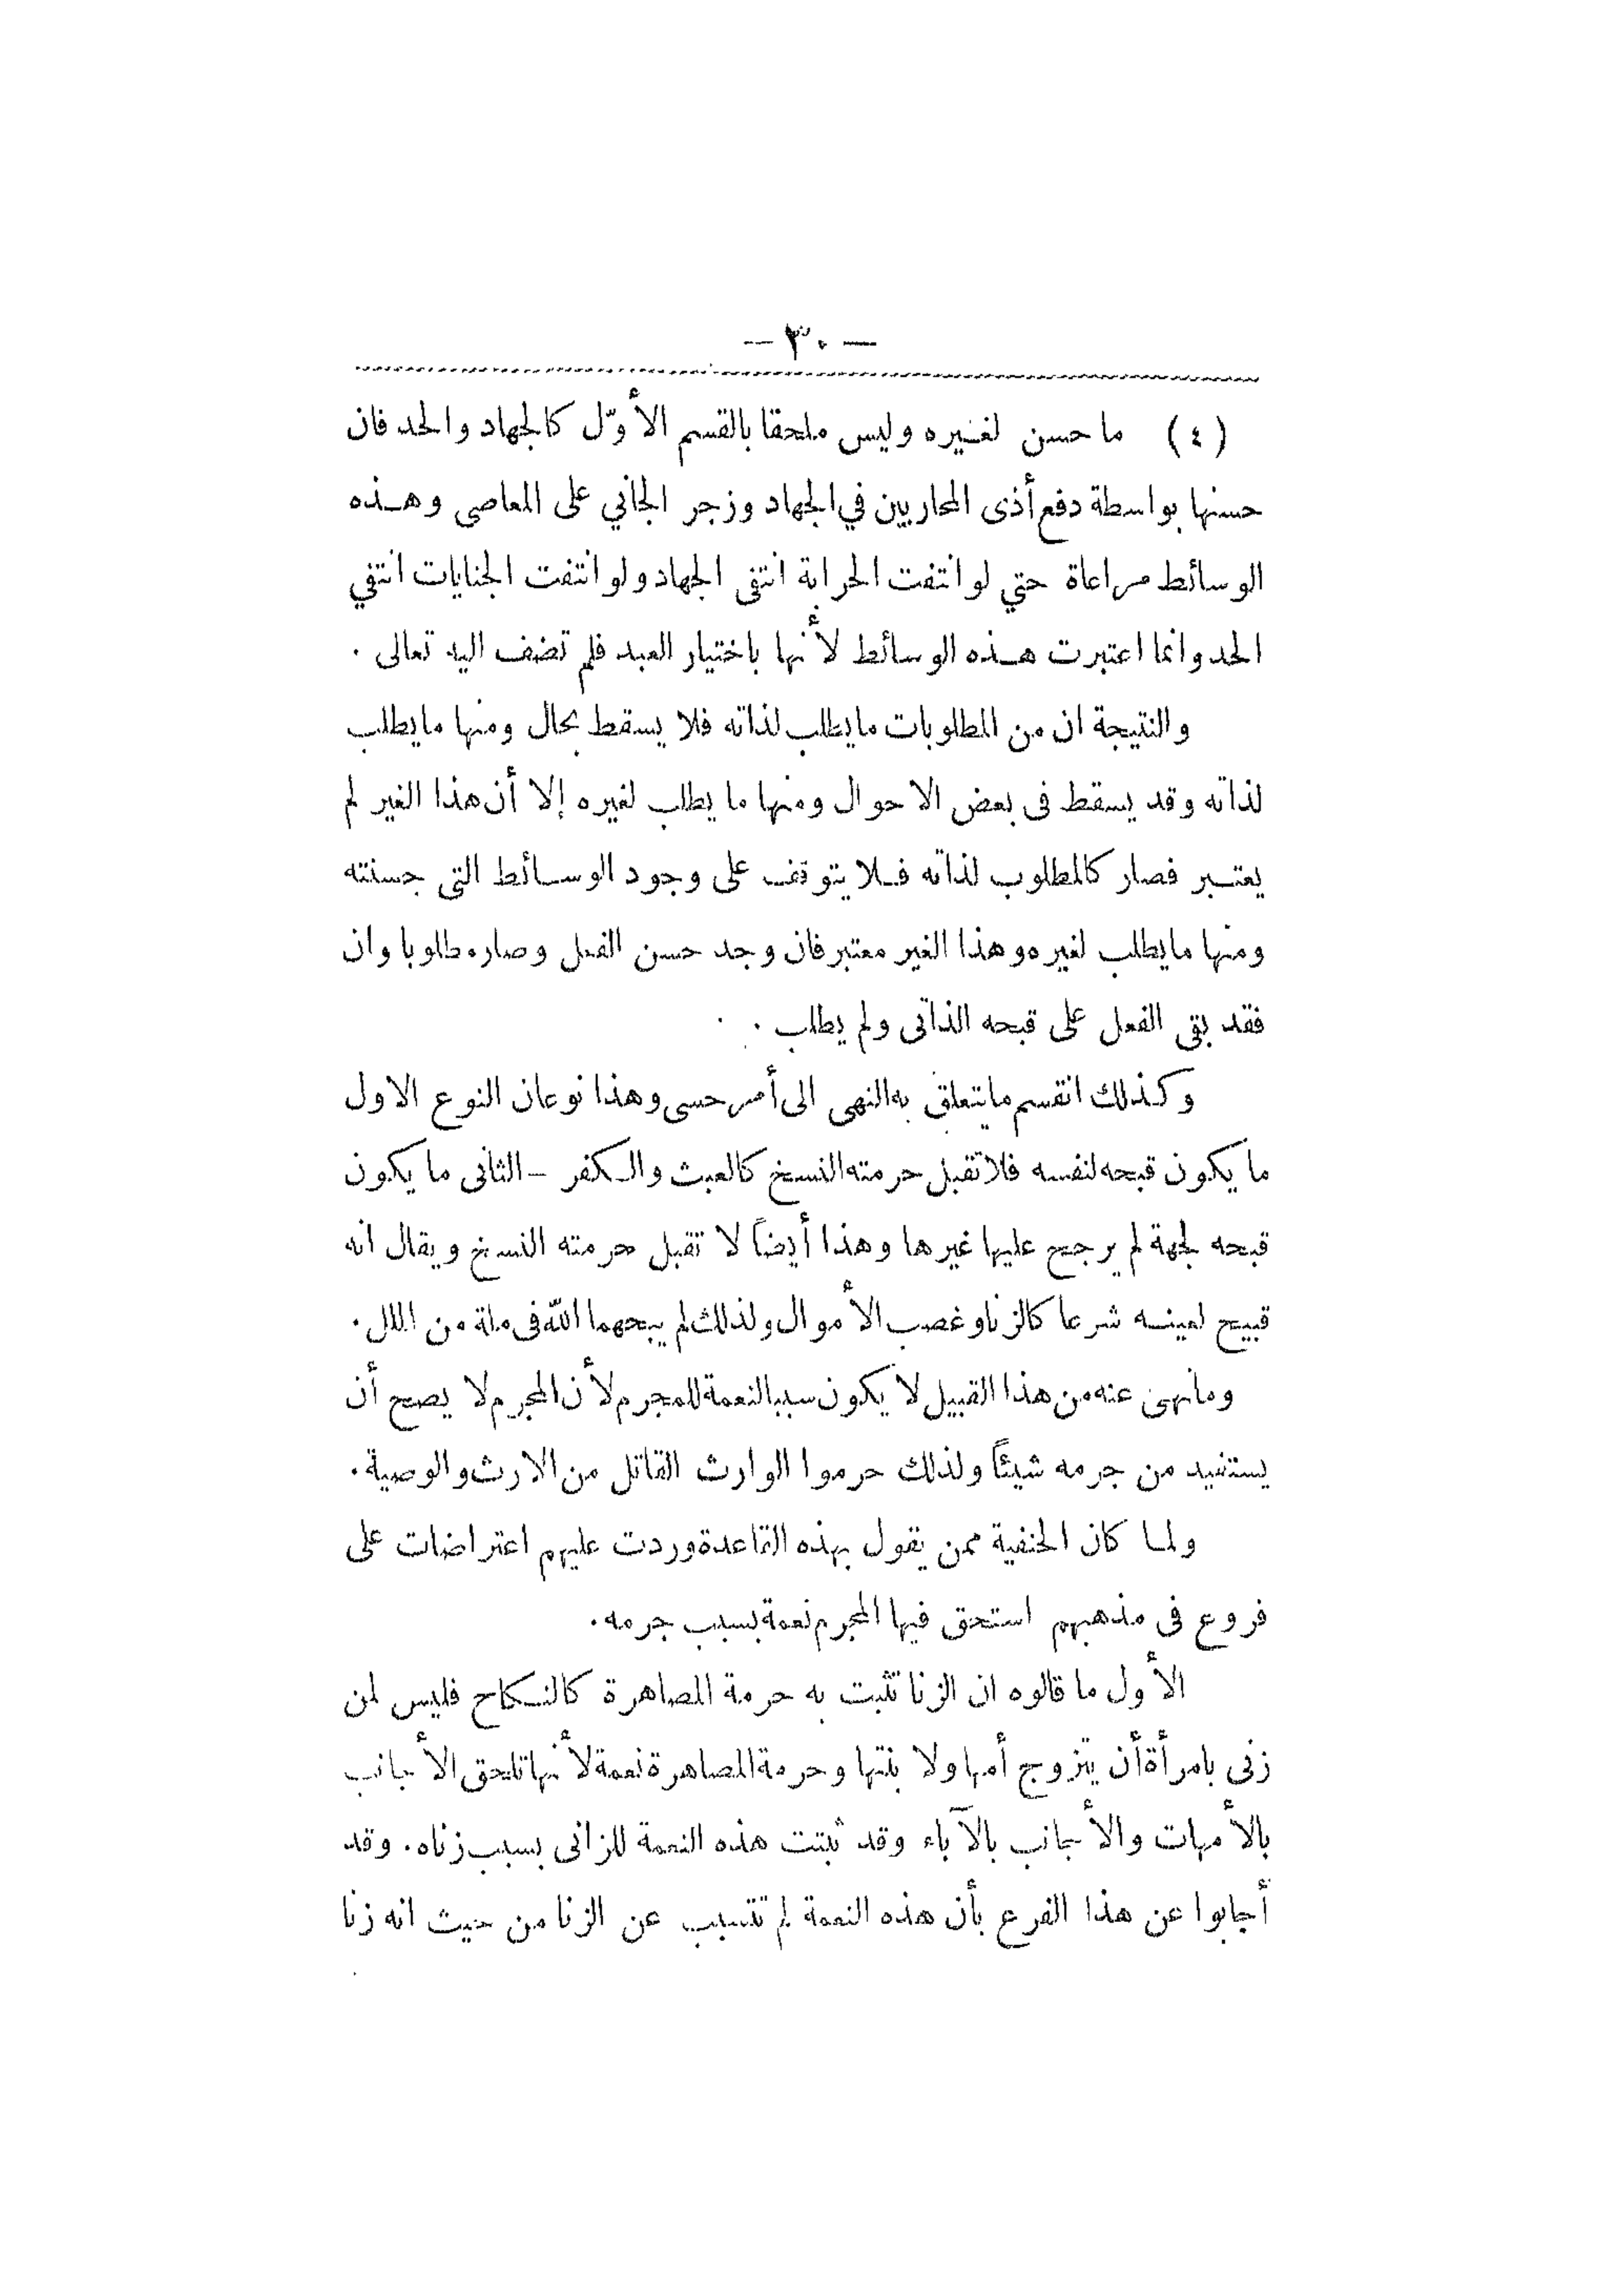 — ٣٠ —
(٤) ما حسن لغيره وليس ملحقا بالقسم الأوّل كالجهاد والحد فان
حسنها بواسطة دفع أذى المحاربين في الجهاد وزجر الجاني على المعاصى وهذه
الوسائط مراعاة حتي لو انتفت الحرابة انتفى الجهاد ولو انتفت الجنايات انتفي
الحد وانما اعتبرت هذه الوسائط لأنها باختيار العبد فلم تضف اليه تعالى .
والنتيجة ان من المطلوبات ما يطلب لذاته فلا يسقط بحال ومنها ما يطلب
لذاته وقد يسقط فى بعض الاحوال ومنها ما يطلب لغيره إلا أن هذا الغير لم
يعتبر فصار كالمطلوب لذاته فلا يتوقف على وجود الوسائط التى حسنته
ومنها ما يطلب لغيره وهذا الغير معتبر فان وجد حسن الفعل وصار مطلوبا وان
فقد بقى الفعل على قبحه الذاتى ولم يطلب .
وكذلك انقسم ما يتعلق به النهى الى أمر حسى وهذا نوعان النوع الاول
ما يكون قبحه لنفسه فلا تقبل حرمته النسخ كالعبث والكفر – الثانى ما يكون
قبحه لجهة لم يرجح عليها غيرها وهذا أيضاً لا تقبل حرمته النسخ ويقال انه
قبيح لعينه شرعا كالزنا وغصب الأموال ولذلك لم يبحهما الله فى ملة من الملل .
وما نهى عنه من هذا القبيل لا يكون سببا لنعمة للمجرم لأن المجرم لا يصح أن
يستفيد من جرمه شيئاً ولذلك حرموا الوارث القاتل من الارث والوصية .
ولما كان الحنفية ممن يقول بهذه القاعدة وردت عليهم اعتراضات على
فروع فى مذهبهم استحق فيها المجرم نعمة بسبب جرمه .
الأول ما قالوه ان الزنا تثبت به حرمة المصاهرة كالنكاح فليس لمن
زنى بامرأة أن يتزوج أمها ولا بنتها وحرمة المصاهرة نعمة لأنها تلحق الأجانب
بالأمهات والأجانب بالآباء وقد ثبتت هذه النعمة للزانى بسبب زناه . وقد
أجابوا عن هذا الفرع بأن هذه النعمة لم تتسبب عن الزنا من حيث انه زنا